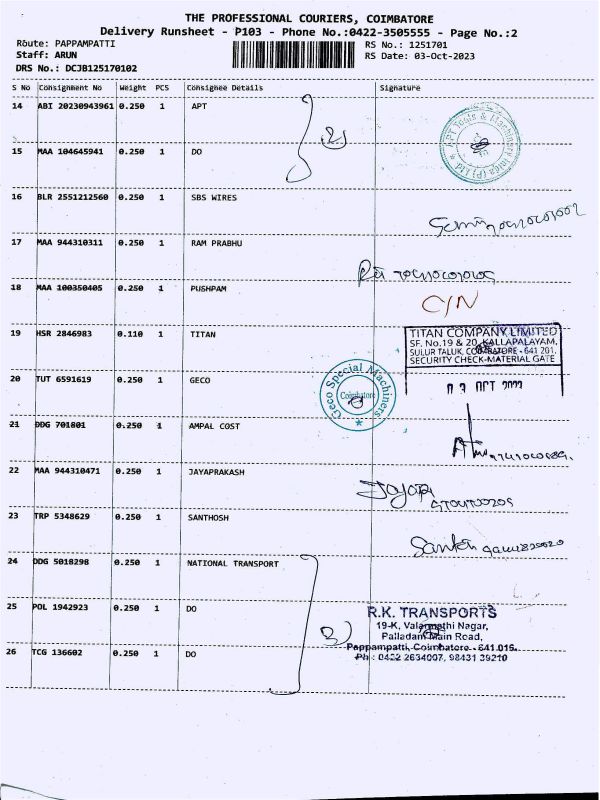 THE PROFESSIONAL COURIERS, COIMBATORE
Delivery Runsheet - P103 - Phone No.:0422-3505555 - Page No.:2
Route: PAPPAMPATTI RS No.: 1251701
Staff: ARUN RS Date: 03-Oct-2023
DRS No.: DCJB125170102
S No Consignment No Weight PCS Consignee Details Signature
14 ABI 20230943961 0.250 1 APT
APT Tools & Machinery India (P) Ltd
15 MAA 104645941 0.250 1 DO
16 BLR 2551212560 0.250 1 SBS WIRES
17 MAA 944310311 0.250 1 RAM PRABHU
18 MAA 100350405 0.250 1 PUSHPAM
C/N
19 HSR 2846983 0.110 1 TITAN
TITAN COMPANY LIMITED
SF. No.19 & 20, KALLAPALAYAM,
SULUR TALUK, COIMBATORE - 641 201.
SECURITY CHECK-MATERIAL GATE
20 TUT 6591619 0.250 1 GECO
Geco Special Machines
Coimbatore
21 DDG 701801 0.250 1 AMPAL COST
22 MAA 944310471 0.250 1 JAYAPRAKASH
23 TRP 5348629 0.250 1 SANTHOSH
24 DDG 5018298 0.250 1 NATIONAL TRANSPORT
25 POL 1942923 0.250 1 DO
R.K. TRANSPORTS
19-K, Valarmathi Nagar,
Palladam Main Road,
Pappampatti, Coimbatore - 641 016.
Ph : 0422 2634007, 98431 39210
26 TCG 136602 0.250 1 DO